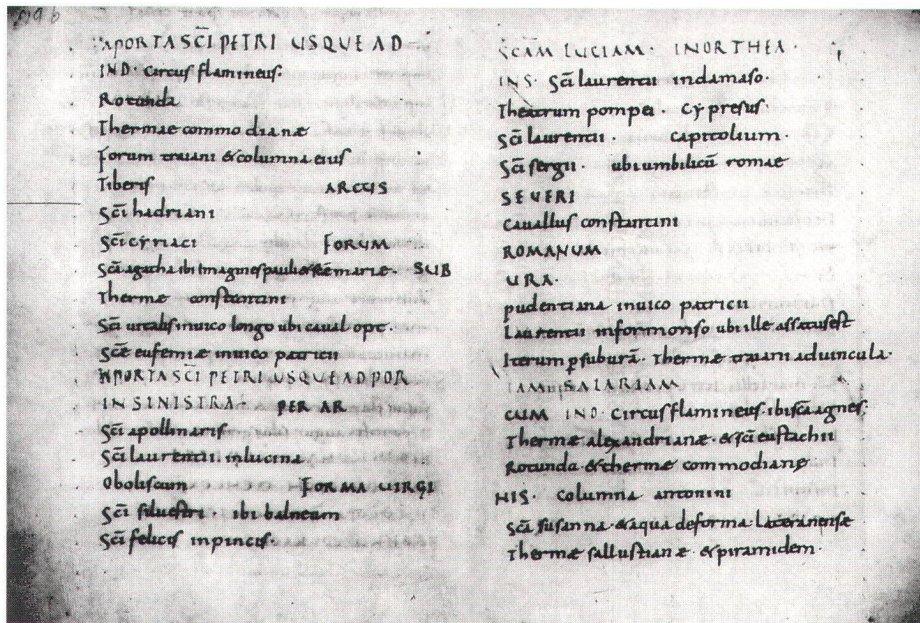 A PORTA SC̄I PETRI USQUE AD
IND· Circus flamineus·
Rotunda
Thermae commodianæ
Forum traiani & columna eius
Tiberis ARCUS
Sc̄i hadriani
Sc̄i cyriaci FORUM
Sc̄a agatha ibi imagines pauli & sc̄e marie· SUB
Thermę constantini
Sc̄i uitalis in uico longo ubi caual opt·
Sc̄e eufemiæ in uico patricii
A PORTA SC̄I PETRI USQUE AD POR
IN SINISTRA· PER AR
Sc̄i apollinaris
Sc̄i laurentii· in lucina
Oboliscum FORMA UIRGI
Sc̄i siluestri ibi balneum
Sc̄i felicis in pincis·
SC̄AM LUCIAM· IN ORTHEA·
INS· Sc̄i laurentii in damaso·
Theatrum pompei Cypresus·
Sc̄i laurentii· capitolium·
Sc̄i sergii· ubi umbilicū romae
SEUERI
Cauallus constantini
ROMANUM
URA·
pudentiana in uico patricii
Laurentii in formonso ubi ille assatus est
Iterum p̱ suburā· Thermæ traiani ad uincula·
TAM SALARIAM
CUM IND· Circus flamineus· ibi sc̄a agnes·
Thermæ alexandrianæ & sc̄i eustachii
Rotunda & thermę commodianę
NIS· columna antonini
Sc̄a susanna & aqua de forma lateranense
Thermæ sallustianæ & piramidem·